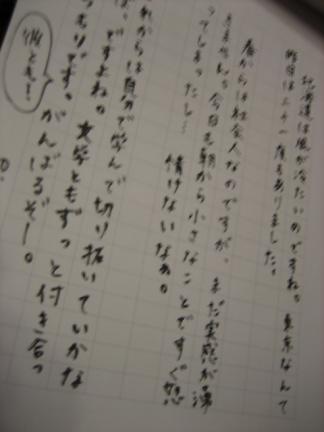 北海道は風が冷たいのですね。 東京なんて
昨日は二十一度もありました。
春からは社会人なのですが、まだ実感が湧
きません。今日も朝から小さなことですぐ怒
ってしまったし… 情けないなぁ。
れからは自分で学んで切り拓いていかな
ですよね。 文学ともずっと付き合っ
つもりです。 がんばるぞー。